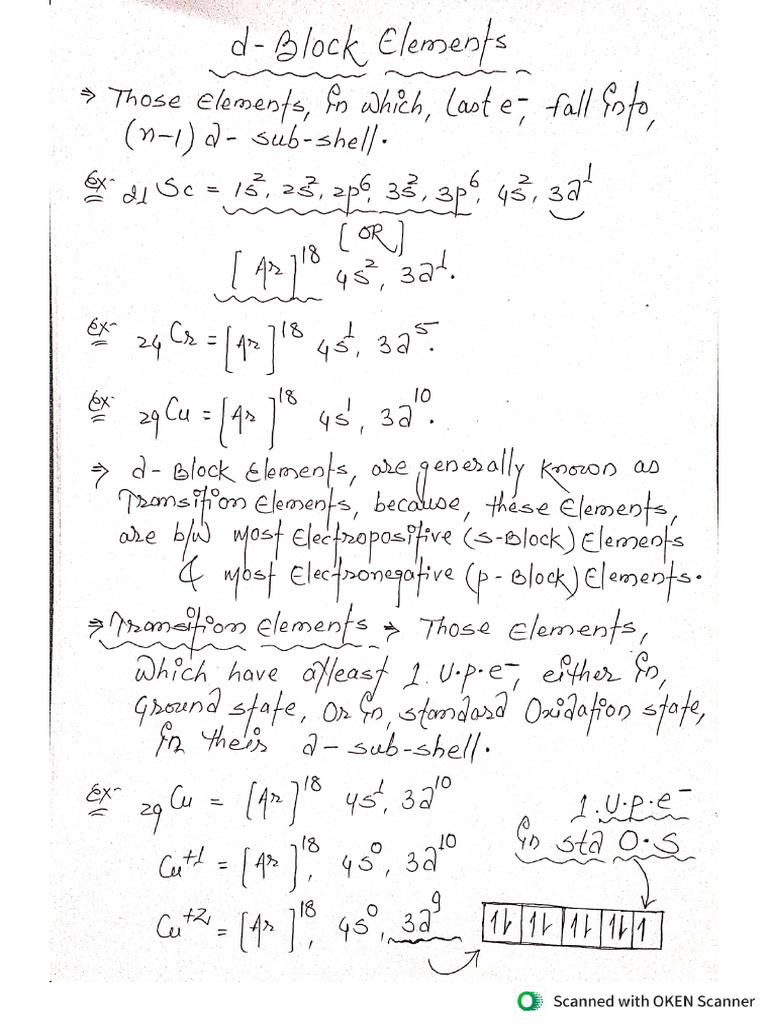 d-Block Elements
⇒ Those Elements, in which, last e⁻, fall into,
(n-1) d- sub-shell.
Ex- ₂₁Sc = 1s², 2s², 2p⁶, 3s², 3p⁶, 4s², 3d¹
[OR]
[Ar]¹⁸ 4s², 3d¹.
Ex- ₂₄Cr = [Ar]¹⁸ 4s¹, 3d⁵.
Ex- ₂₉Cu = [Ar]¹⁸ 4s¹, 3d¹⁰.
⇒ d-Block Elements, are generally known as
Transition Elements, because, these Elements,
are b/w most Electropositive (s-Block) Elements
& most Electronegative (p-Block) Elements.
⇒ Transition Elements → Those Elements,
which have atleast 1.U.p.e⁻, either in,
Ground state, Or in, standard Oxidation state,
in their d-sub-shell.
Ex- ₂₉Cu = [Ar]¹⁸ 4s¹, 3d¹⁰
Cu⁺¹ = [Ar]¹⁸, 4s⁰, 3d¹⁰
Cu⁺² = [Ar]¹⁸, 4s⁰, 3d⁹
1.U.p.e⁻
in std O.S
1l 1l 1l 1l 1
Scanned with OKEN Scanner